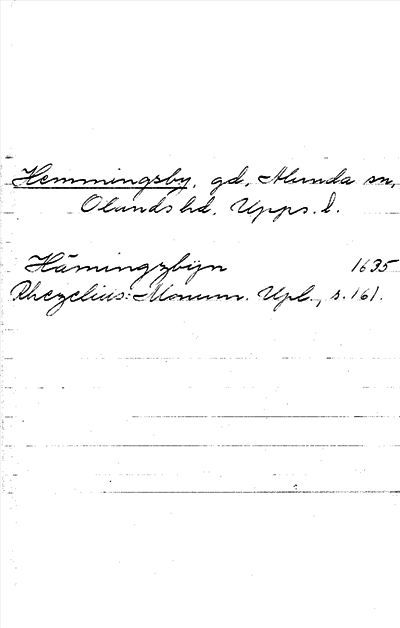 Hemmingsby, gd, Alunda sn,
Olands hd, Upps. l.
Hämingzbijn 1635
Rhezelius: Monum. Upl., s. 161.